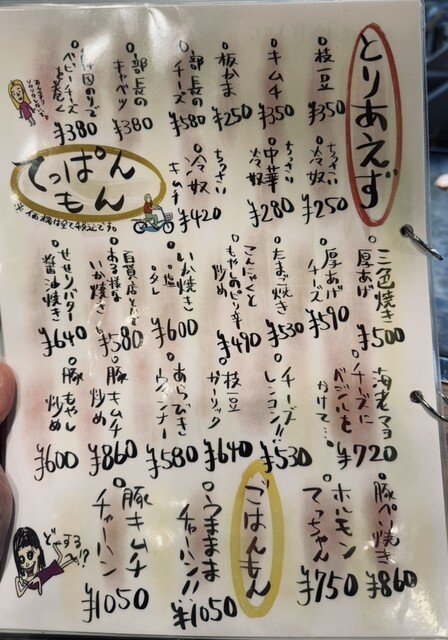 とりあえず
枝豆 ¥350
キムチ ¥350
板かま ¥250
部長のチーズ ¥580
部長のキャベツ ¥380
のりで
ベビーチーズ
を巻く ¥380
ちっさい冷奴 ¥250
ちっさい中華冷奴 ¥280
ちっさいキムチ冷奴 ¥420
てっぱんもん
※価格は全て税込です。
三色焼き厚あげ ¥500
厚あげチーズ ¥590
たまご焼き ¥530
こんにゃくと
もやしのピリ辛
炒め ¥490
いか焼き
塩 タレ ¥600
百貨店とかで
ある様な
いか焼き ¥580
せせりバター
醤油焼き ¥640
海老マヨ
チーズに
バジルを
かけて… ¥720
チーズ
レンコン!! ¥530
枝豆
ガーリック ¥640
あらびき
ウインナー ¥580
豚キムチ
炒め ¥860
豚もやし
炒め ¥600
豚ペい焼き ¥860
ホルモン
てっちゃん ¥750
ごはんもん
うままま
チャーハン!! ¥1050
豚キムチ
チャーハン ¥1050
どーする!?